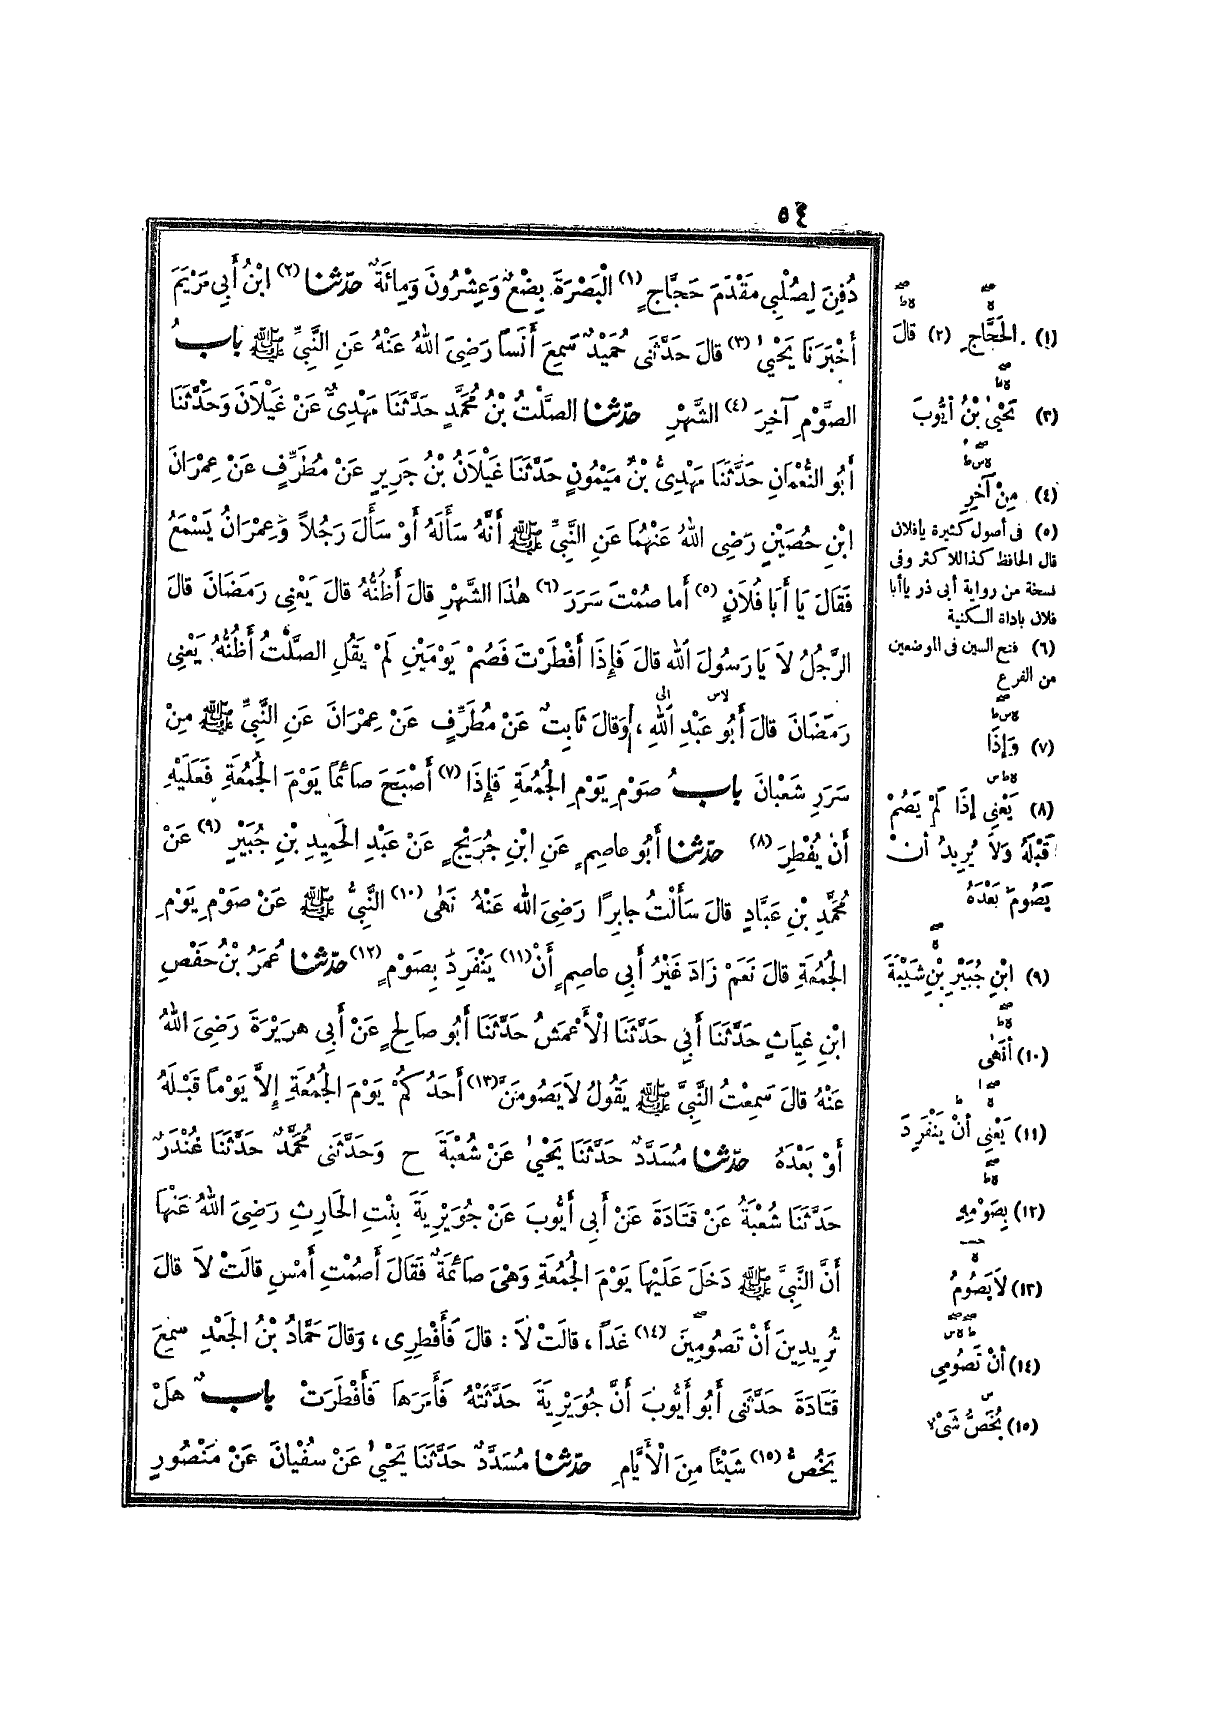 ٥٤
دُفِنَ لِصُلْبِي مَقْدَمَ حَجَّاجٍ (١) الْبَصْرَةَ بِضْعٌ وَعِشْرُونَ وَمِائَةٌ حَدَّثَنَا (٢) ابْنُ أَبِي مَرْيَمَ
أَخْبَرَنَا يَحْيَى (٣) قَالَ حَدَّثَنِي حُمَيْدٌ سَمِعَ أَنَساً رَضِيَ اللهُ عَنْهُ عَنِ النَّبِيِّ ﷺ بَابُ
الصَّوْمِ آخِرَ (٤) الشَّهْرِ حَدَّثَنَا الصَّلْتُ بْنُ مُحَمَّدٍ حَدَّثَنَا مَهْدِيٌّ عَنْ غَيْلَانَ وَحَدَّثَنَا
أَبُو النُّعْمَانِ حَدَّثَنَا مَهْدِيُّ بْنُ مَيْمُونٍ حَدَّثَنَا غَيْلَانُ بْنُ جَرِيرٍ عَنْ مُطَرِّفٍ عَنْ عِمْرَانَ
ابْنِ حُصَيْنٍ رَضِيَ اللهُ عَنْهُمَا عَنِ النَّبِيِّ ﷺ أَنَّهُ سَأَلَهُ أَوْ سَأَلَ رَجُلاً وَعِمْرَانُ يَسْمَعُ
فَقَالَ يَا أَبَا فُلَانٍ (٥) أَمَا صُمْتَ سَرَرَ (٦) هٰذَا الشَّهْرِ قَالَ أَظُنُّهُ قَالَ يَعْنِي رَمَضَانَ قَالَ
الرَّجُلُ لَا يَا رَسُولَ اللهِ قَالَ فَإِذَا أَفْطَرْتَ فَصُمْ يَوْمَيْنِ لَمْ يَقُلِ الصَّلْتُ أَظُنُّهُ يَعْنِي
رَمَضَانَ قَالَ أَبُو عَبْدِ اللهِ ، وَقَالَ ثَابِتٌ عَنْ مُطَرِّفٍ عَنْ عِمْرَانَ عَنِ النَّبِيِّ ﷺ مِنْ
سَرَرِ شَعْبَانَ بَابُ صَوْمِ يَوْمِ الْجُمُعَةِ فَإِذَا (٧) أَصْبَحَ صَائِمًا يَوْمَ الْجُمُعَةِ فَعَلَيْهِ
أَنْ يُفْطِرَ (٨) حَدَّثَنَا أَبُو عَاصِمٍ عَنِ ابْنِ جُرَيْجٍ عَنْ عَبْدِ الْحَمِيدِ بْنِ جُبَيْرٍ (٩) عَنْ
مُحَمَّدِ بْنِ عَبَّادٍ قَالَ سَأَلْتُ جَابِرًا رَضِيَ اللهُ عَنْهُ نَهَى (١٠) النَّبِيُّ ﷺ عَنْ صَوْمِ يَوْمِ
الْجُمُعَةِ قَالَ نَعَمْ زَادَ غَيْرُ أَبِي عَاصِمٍ أَنْ (١١) يَنْفَرِدَ بِصَوْمٍ (١٢) حَدَّثَنَا عُمَرُ بْنُ حَفْصِ
ابْنِ غِيَاثٍ حَدَّثَنَا أَبِي حَدَّثَنَا الْأَعْمَشُ حَدَّثَنَا أَبُو صَالِحٍ عَنْ أَبِي هُرَيْرَةَ رَضِيَ اللهُ
عَنْهُ قَالَ سَمِعْتُ النَّبِيَّ ﷺ يَقُولُ لَا يَصُومَنَّ (١٣) أَحَدُكُمْ يَوْمَ الْجُمُعَةِ إِلَّا يَوْمًا قَبْلَهُ
أَوْ بَعْدَهُ حَدَّثَنَا مُسَدَّدٌ حَدَّثَنَا يَحْيَى عَنْ شُعْبَةَ ح وَحَدَّثَنِي مُحَمَّدٌ حَدَّثَنَا غُنْدَرٌ
حَدَّثَنَا شُعْبَةُ عَنْ قَتَادَةَ عَنْ أَبِي أَيُّوبَ عَنْ جُوَيْرِيَةَ بِنْتِ الْحَارِثِ رَضِيَ اللهُ عَنْهَا
أَنَّ النَّبِيَّ ﷺ دَخَلَ عَلَيْهَا يَوْمَ الْجُمُعَةِ وَهْيَ صَائِمَةٌ فَقَالَ أَصُمْتِ أَمْسِ قَالَتْ لَا قَالَ
تُرِيدِينَ أَنْ تَصُومِينَ (١٤) غَدًا ، قَالَتْ لَا : قَالَ فَأَفْطِرِي ، وَقَالَ حَمَّادُ بْنُ الْجَعْدِ سَمِعَ
قَتَادَةَ حَدَّثَنِي أَبُو أَيُّوبَ أَنَّ جُوَيْرِيَةَ حَدَّثَتْهُ فَأَمَرَهَا فَأَفْطَرَتْ بَابٌ هَلْ
يَخُصُّ (١٥) شَيْئًا مِنَ الْأَيَّامِ حَدَّثَنَا مُسَدَّدٌ حَدَّثَنَا يَحْيَى عَنْ سُفْيَانَ عَنْ مَنْصُورٍ
(١) الْحَجَّاجِ (٢) قَالَ
(٣) يَحْيَى بْنُ أَيُّوبَ
(٤) مِنْ آخِرِ
(٥) فى أصول كثيرة يافلان
قال الحافظ كذا للاكثر وفى
نسخة من رواية أبى ذر ياأبا
فلان باداة الكنية
(٦) فتح السين فى الموضعين
من الفرع
(٧) وَإِذَا
(٨) يَعْنِي إِذَا لَمْ يَصُمْ
قَبْلَهُ وَلَا يُرِيدُ أَنْ
يَصُومَ بَعْدَهُ
(٩) ابْنِ جُبَيْرِ بْنِ شَيْبَةَ
(١٠) أَنَهَى
(١١) يَعْنِي أَنْ يَنْفَرِدَ
(١٢) بِصَوْمِهِ
(١٣) لَا يَصُومُ
(١٤) أَنْ تَصُومِي
(١٥) يُخَصُّ شَيْءٌ